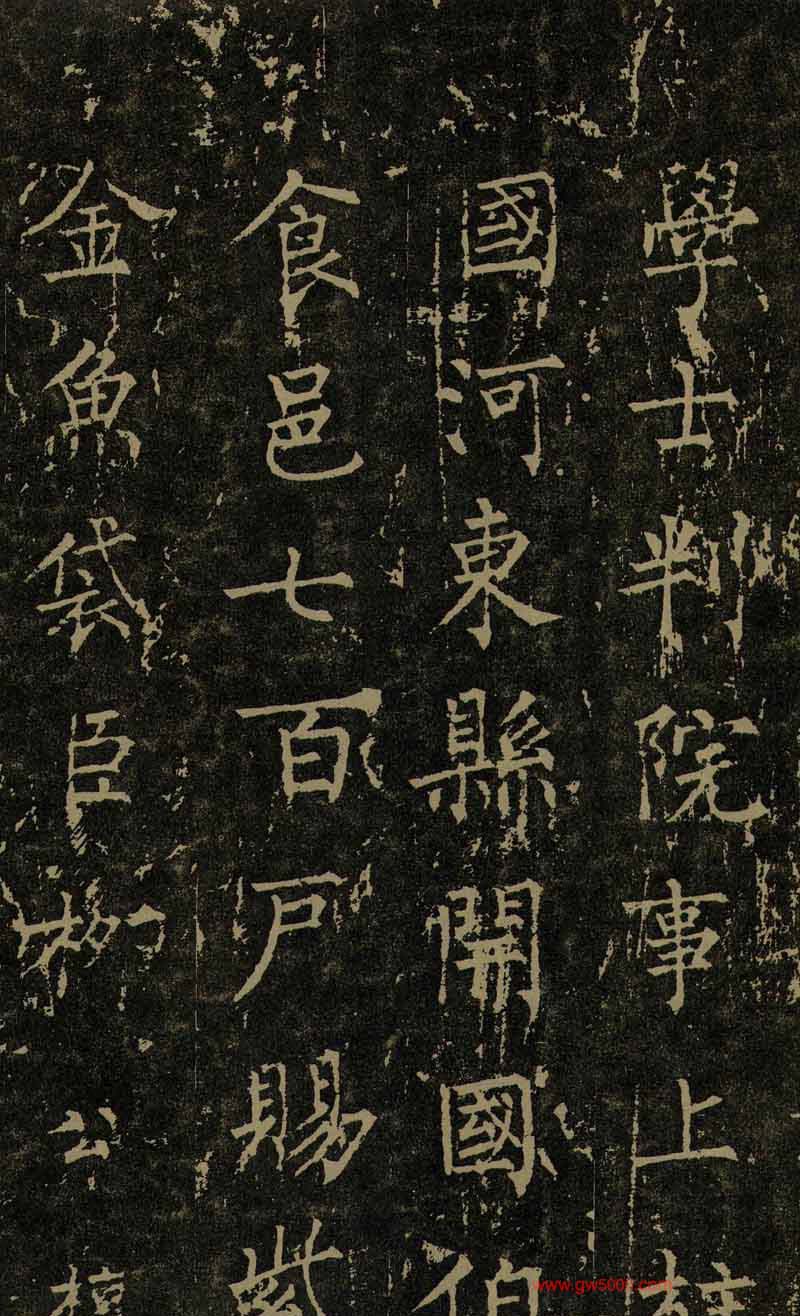 學士判院事上柱
國河東縣開國伯
食邑七百户賜紫
金魚袋臣柳公權